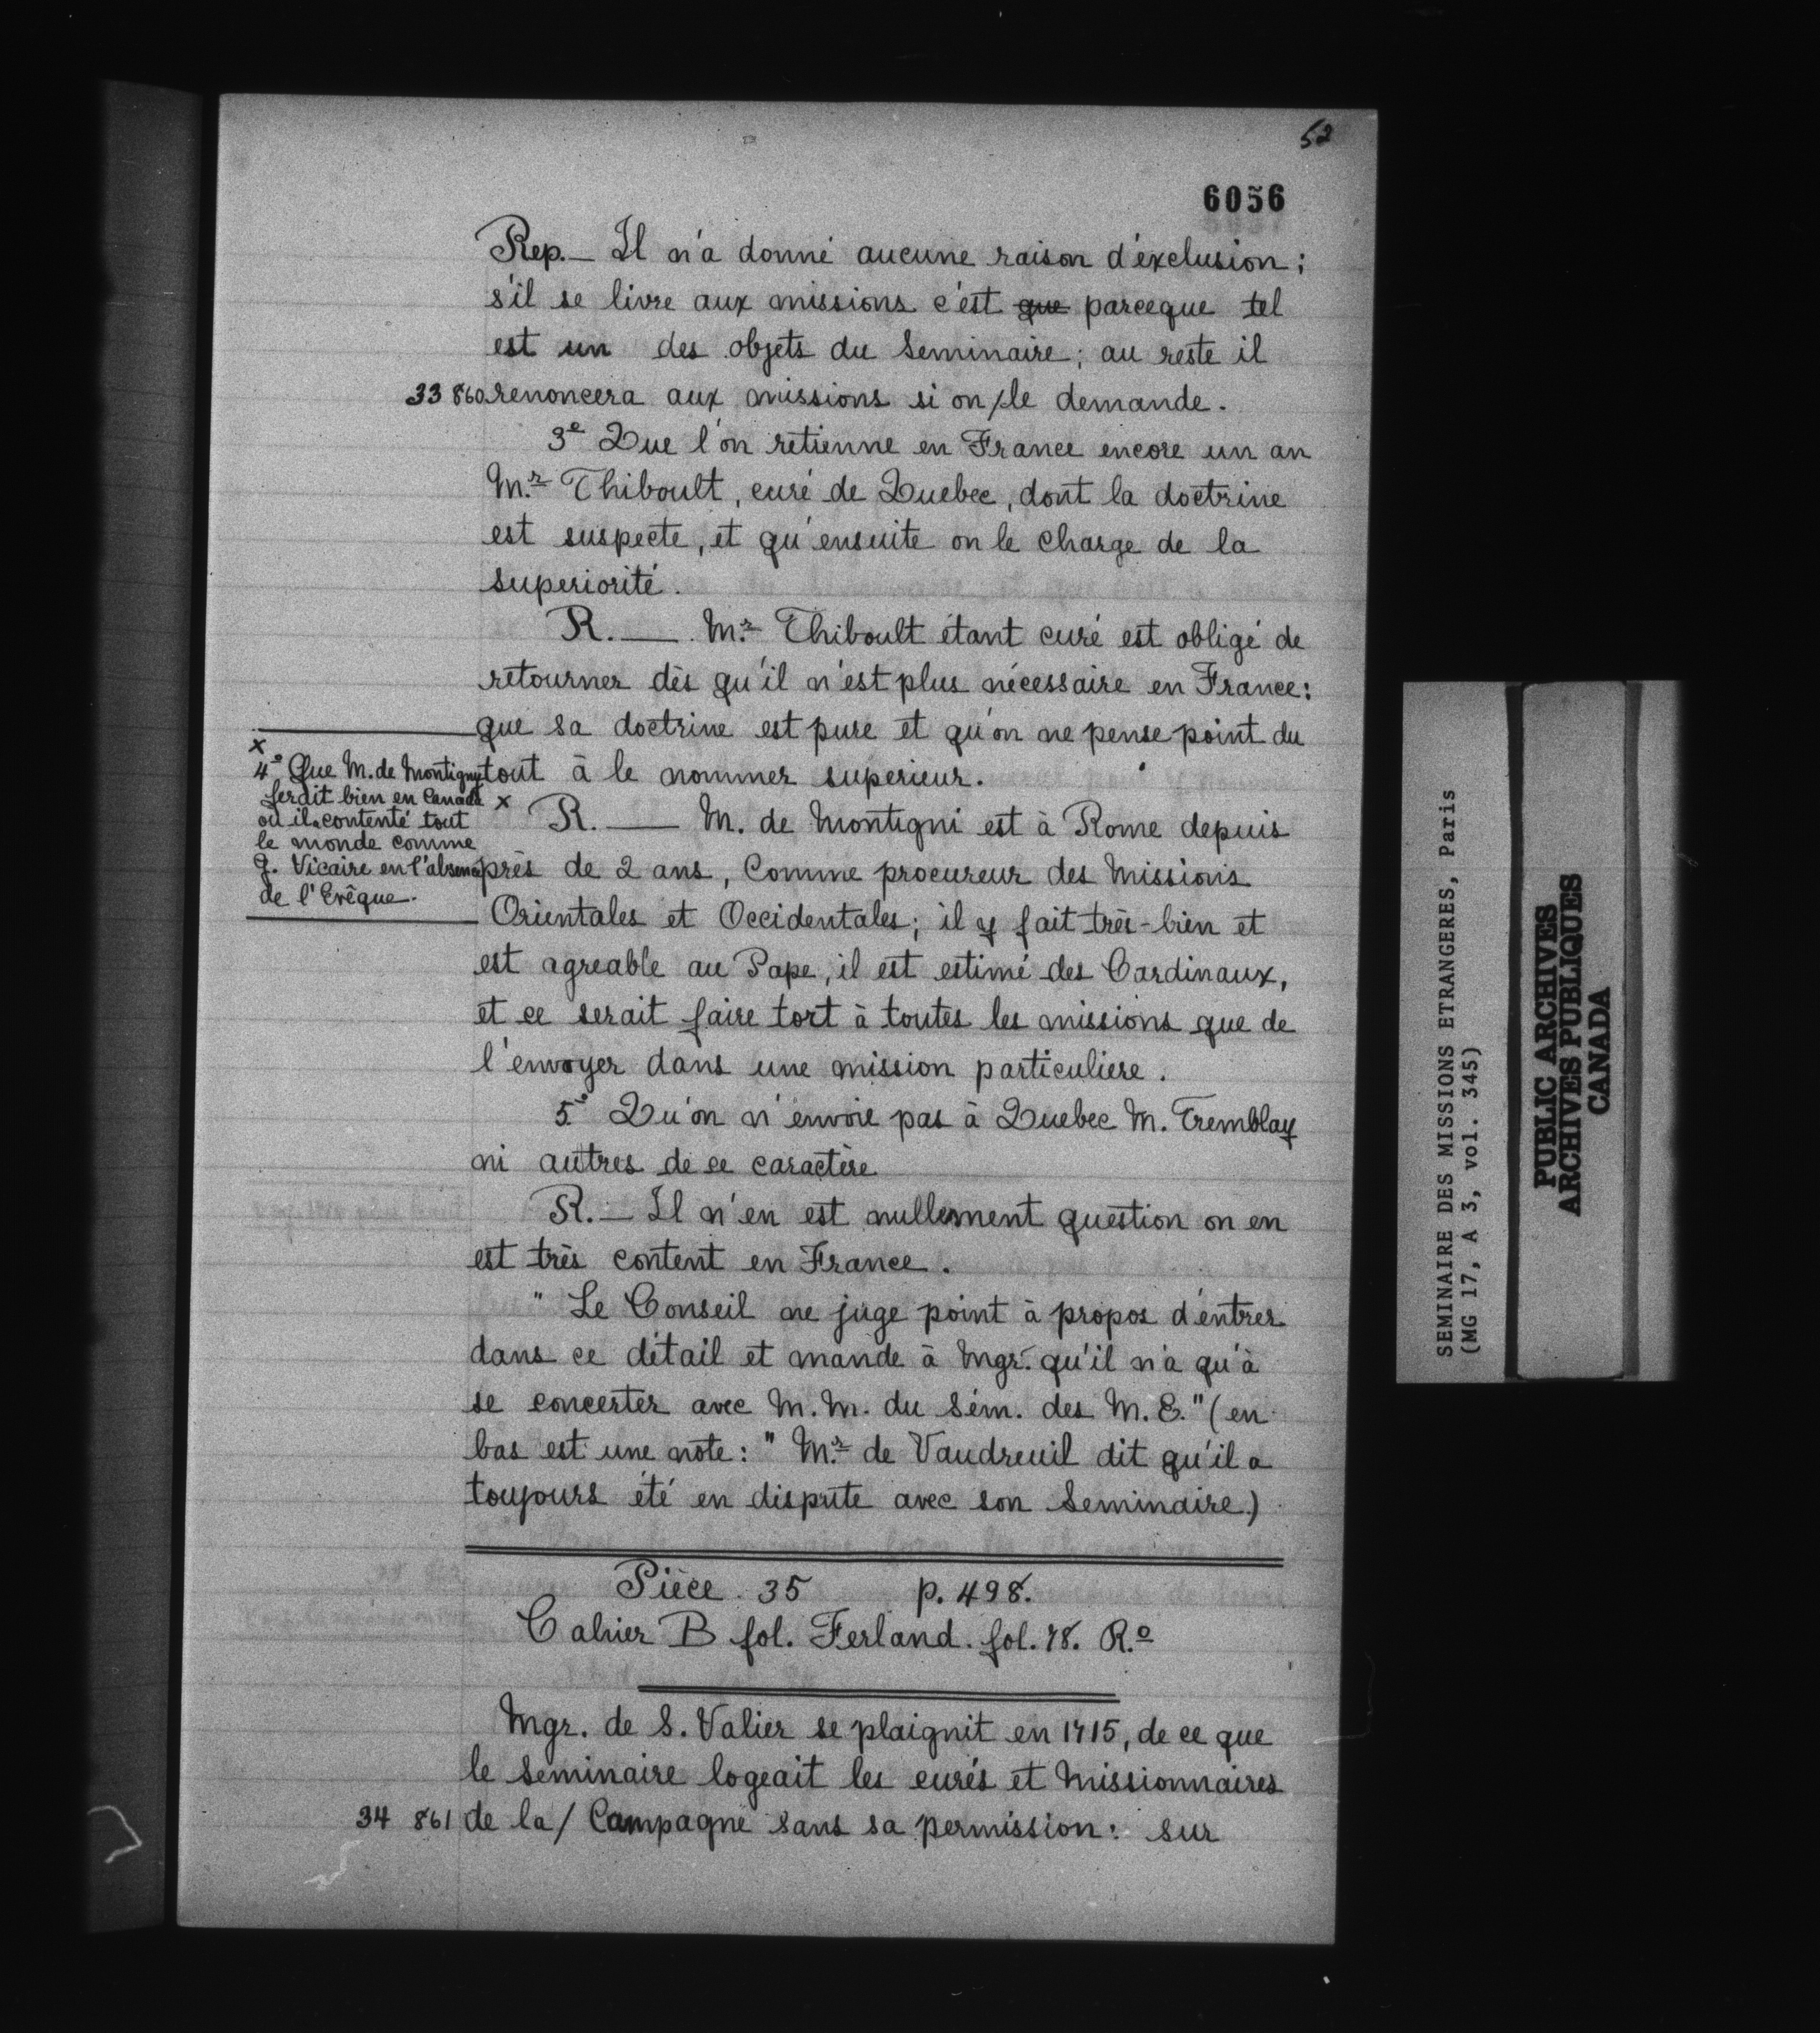 52
6056
Rep.— Il n'a donné aucune raison d'éxclusion;
s'il se livre aux missions c'est que parceque tel
est un des objets du Seminaire; au reste il
33 860 renoncera aux missions si on/le demande.
3e Que l'on retienne en France encore un an
M.r Thiboult, curé de Quebec, dont la doctrine
est suspecte, et qu'ensuite on le charge de la
superiorité.
R. — M.r Thiboult étant curé est obligé de
retourner dès qu'il n'est plus nécessaire en France:
que sa doctrine est pure et qu'on ne pense point du
tout à le nommer superieur.
x
4° Que M. de Montigny
ferait bien en Canada x
où il a contenté tout
le monde comme
G. Vicaire en l'absence
de l'Evêque.
R. — M. de Montigni est à Rome depuis
près de 2 ans, Comme procureur des Missions
Orientales et Occidentales; il y fait très-bien et
est agreable au Pape, il est estimé des Cardinaux,
et ce serait faire tort à toutes les missions que de
l'envoyer dans une mission particuliere.
5.° Qu'on n'envoie pas à Quebec M. Tremblay
ni autres de ce caractère
R.— Il n'en est nullement question on en
est très content en France.
" Le Conseil ne juge point à propos d'entrer
dans ce détail et mande à Mgr. qu'il n'a qu'à
se concerter avec M.M. du Sém. des M.E." (en
bas est une note: " M.r de Vaudreuil dit qu'il a
toujours été en dispute avec son Seminaire.)
Pièce 35 p. 498.
Cahier B fol. Ferland. fol. 78. R.o
Mgr. de S. Valier se plaignit en 1715, de ce que
le Seminaire logeait les curés et Missionnaires
34 861 de la/ Campagne sans sa permission: sur
SEMINAIRE DES MISSIONS ETRANGERES, Paris
(MG 17, A 3, vol. 345)
PUBLIC ARCHIVES
ARCHIVES PUBLIQUES
CANADA